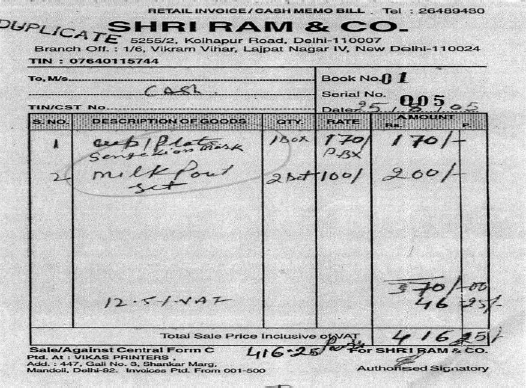 RETAIL INVOICE / CASH MEMO BILL . Tel : 26489480
DUPLICATE
SHRI RAM & CO.
5255/2, Kolhapur Road, Delhi-110007
Branch Off. : 1/6, Vikram Vihar, Lajpat Nagar IV, New Delhi-110024
TIN : 07640115744
To, M/s. Cash
Book No. 01
Serial No. 005
TIN/CST No.
Date 25/8/05
S. NO. DESCRIPTION OF GOODS QTY. RATE AMOUNT
Rs. P.
1 cup/plat 1 Box 170/ 170/-
P. Box
2 milk pout 2 set 100/ 200/-
set
370/-00
12.5/- VAT 46 25/-
Total Sale Price Inclusive of VAT 416 25/-
Sale/Against Central Form C 416-25 For SHRI RAM & CO.
Ptd. At : VIKAS PRINTERS,
Add. : 447, Gali No. 3, Shankar Marg,
Mandoli, Delhi-92. Invoices Ptd. From 001-500 Authorised Signatory